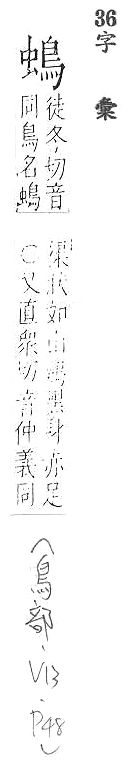 36
字彙
䖝鳥
徒冬切音
同鳥名䳋
狀如山雞黑身赤足
○又直衆切音仲義同
(鳥部、V13、P48)